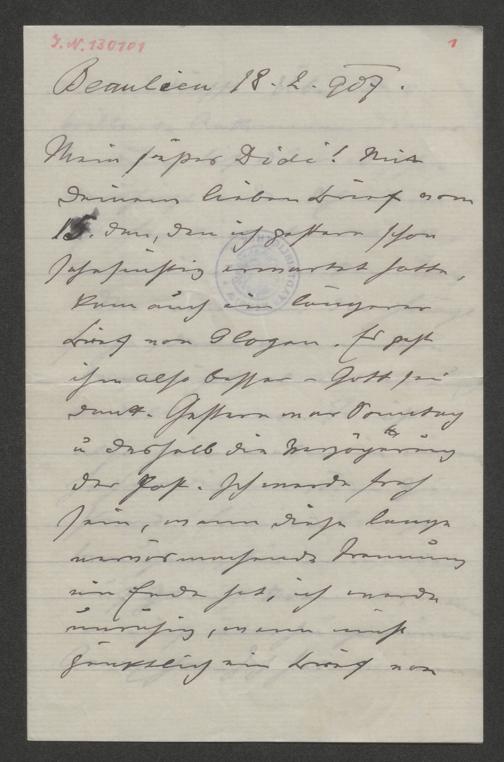 J.N. 130101
1
Beaulieu 18. 2. 907.
Mein süßes Didi! Mit
deinem lieben Brief vom
15. den, den ich gestern schon
sehnsüchtig erwartet hatte,
kam auch ein längerer
Brief von Glogau. Er geht
ihm also besser – Gott sei
dank. Gestern war Sonntag
u deshalb die Verzögerung
der Post. Ich werde froh
sein, wenn diese lange
nervösmachende Trennung
ein Ende hat, ich werde
unruhig, wenn nicht
pünktlich ein Brief von